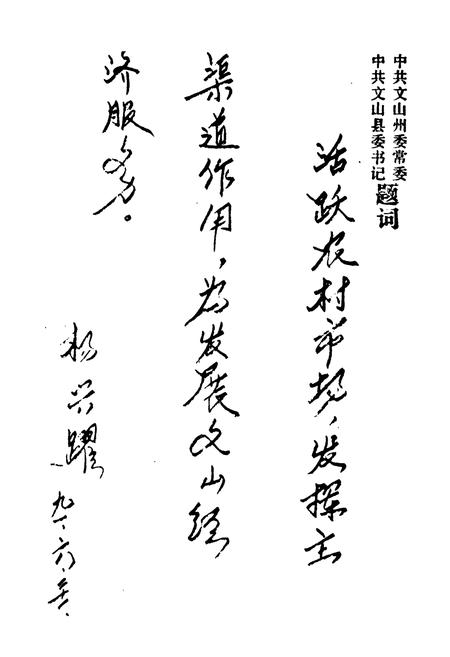 中共文山州委常委
中共文山县委书记
题词
活跃农村市场,发挥主
渠道作用,为发展文山经
济服务。
杨兴躍
九一.六.